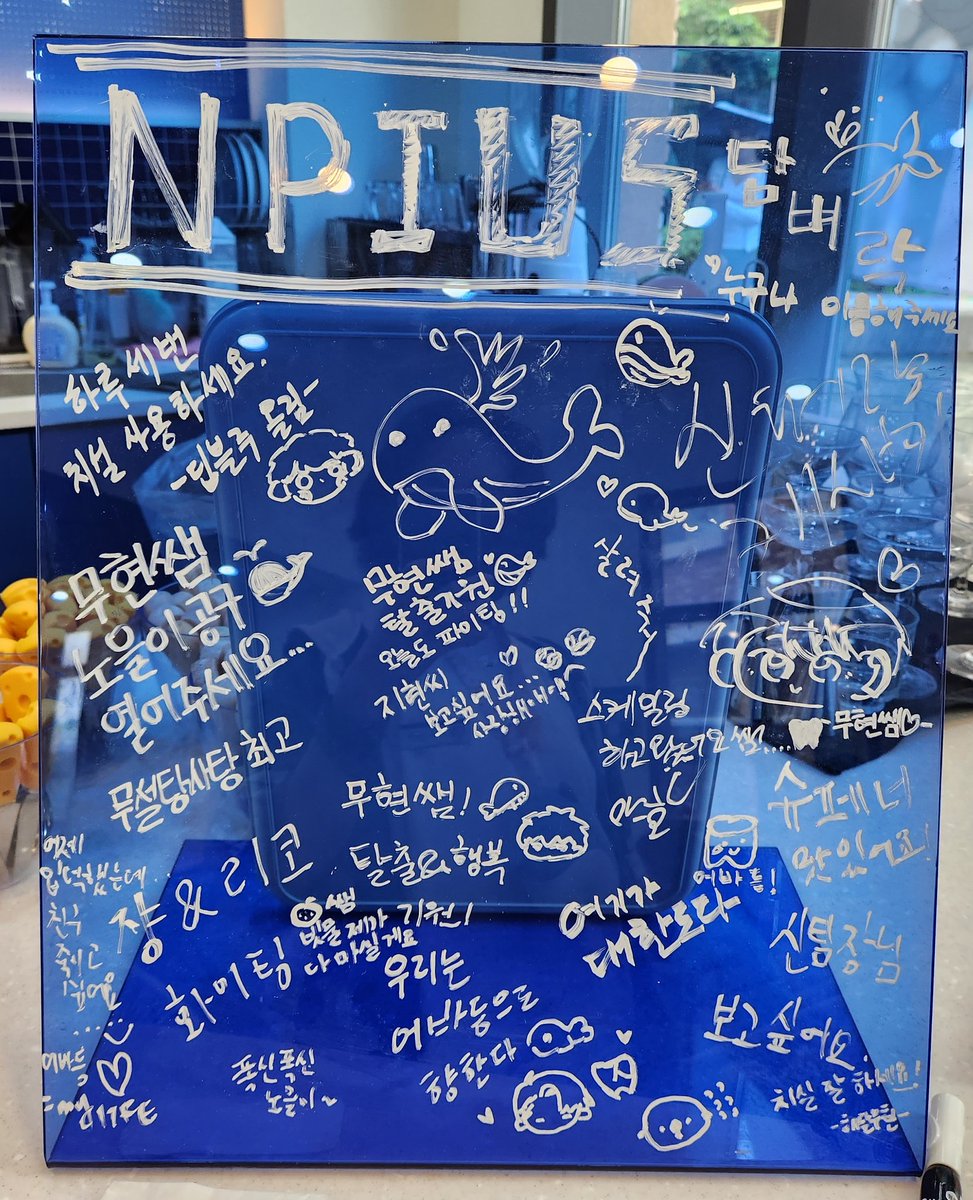 NPIUS
담
벼
락
누구나 이용해주세요
하루 세번
치실 사용하세요.
-딥블루 돌림-
무현쌤
노을이 공구
열어주세요...
무현쌤
탈출기원
오늘도 파이팅!!
지현씨
보고싶어요...
사랑해여
살려주시
스케일링
하고왔어요 쌤....
무현쌤
무설탕사탕 최고
무현쌤!
탈출&행복
기원!
야호
슈페너
맛있어요!
어바틀!
어제
입덕했는데...
친구
죽이고
싶어요
....
장&리코
화이팅
쌤
빗물 제가
다 마실게요
여기가
대한도다
신팀장님
보고싶어요.
우리는
어바등으로
향한다
폭신폭신
노을이~
어바등
치실 잘 하세요!